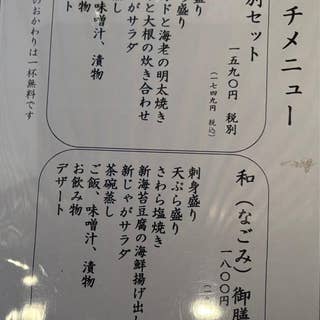 チメニュー
別セット
一五九〇円 税別
(一七四九円 税込)
盛り
と海老の明太焼き
と大根の炊き合わせ
がサラダ
味噌汁、漬物
み物
のおかわりは一杯無料です
和(なごみ)御膳
一八〇〇円
刺身盛り
天ぷら盛り
さわら塩焼き
新海苔豆腐の海鮮揚げ出し
新じゃがサラダ
茶碗蒸し
ご飯、味噌汁、漬物
お飲み物
デザート